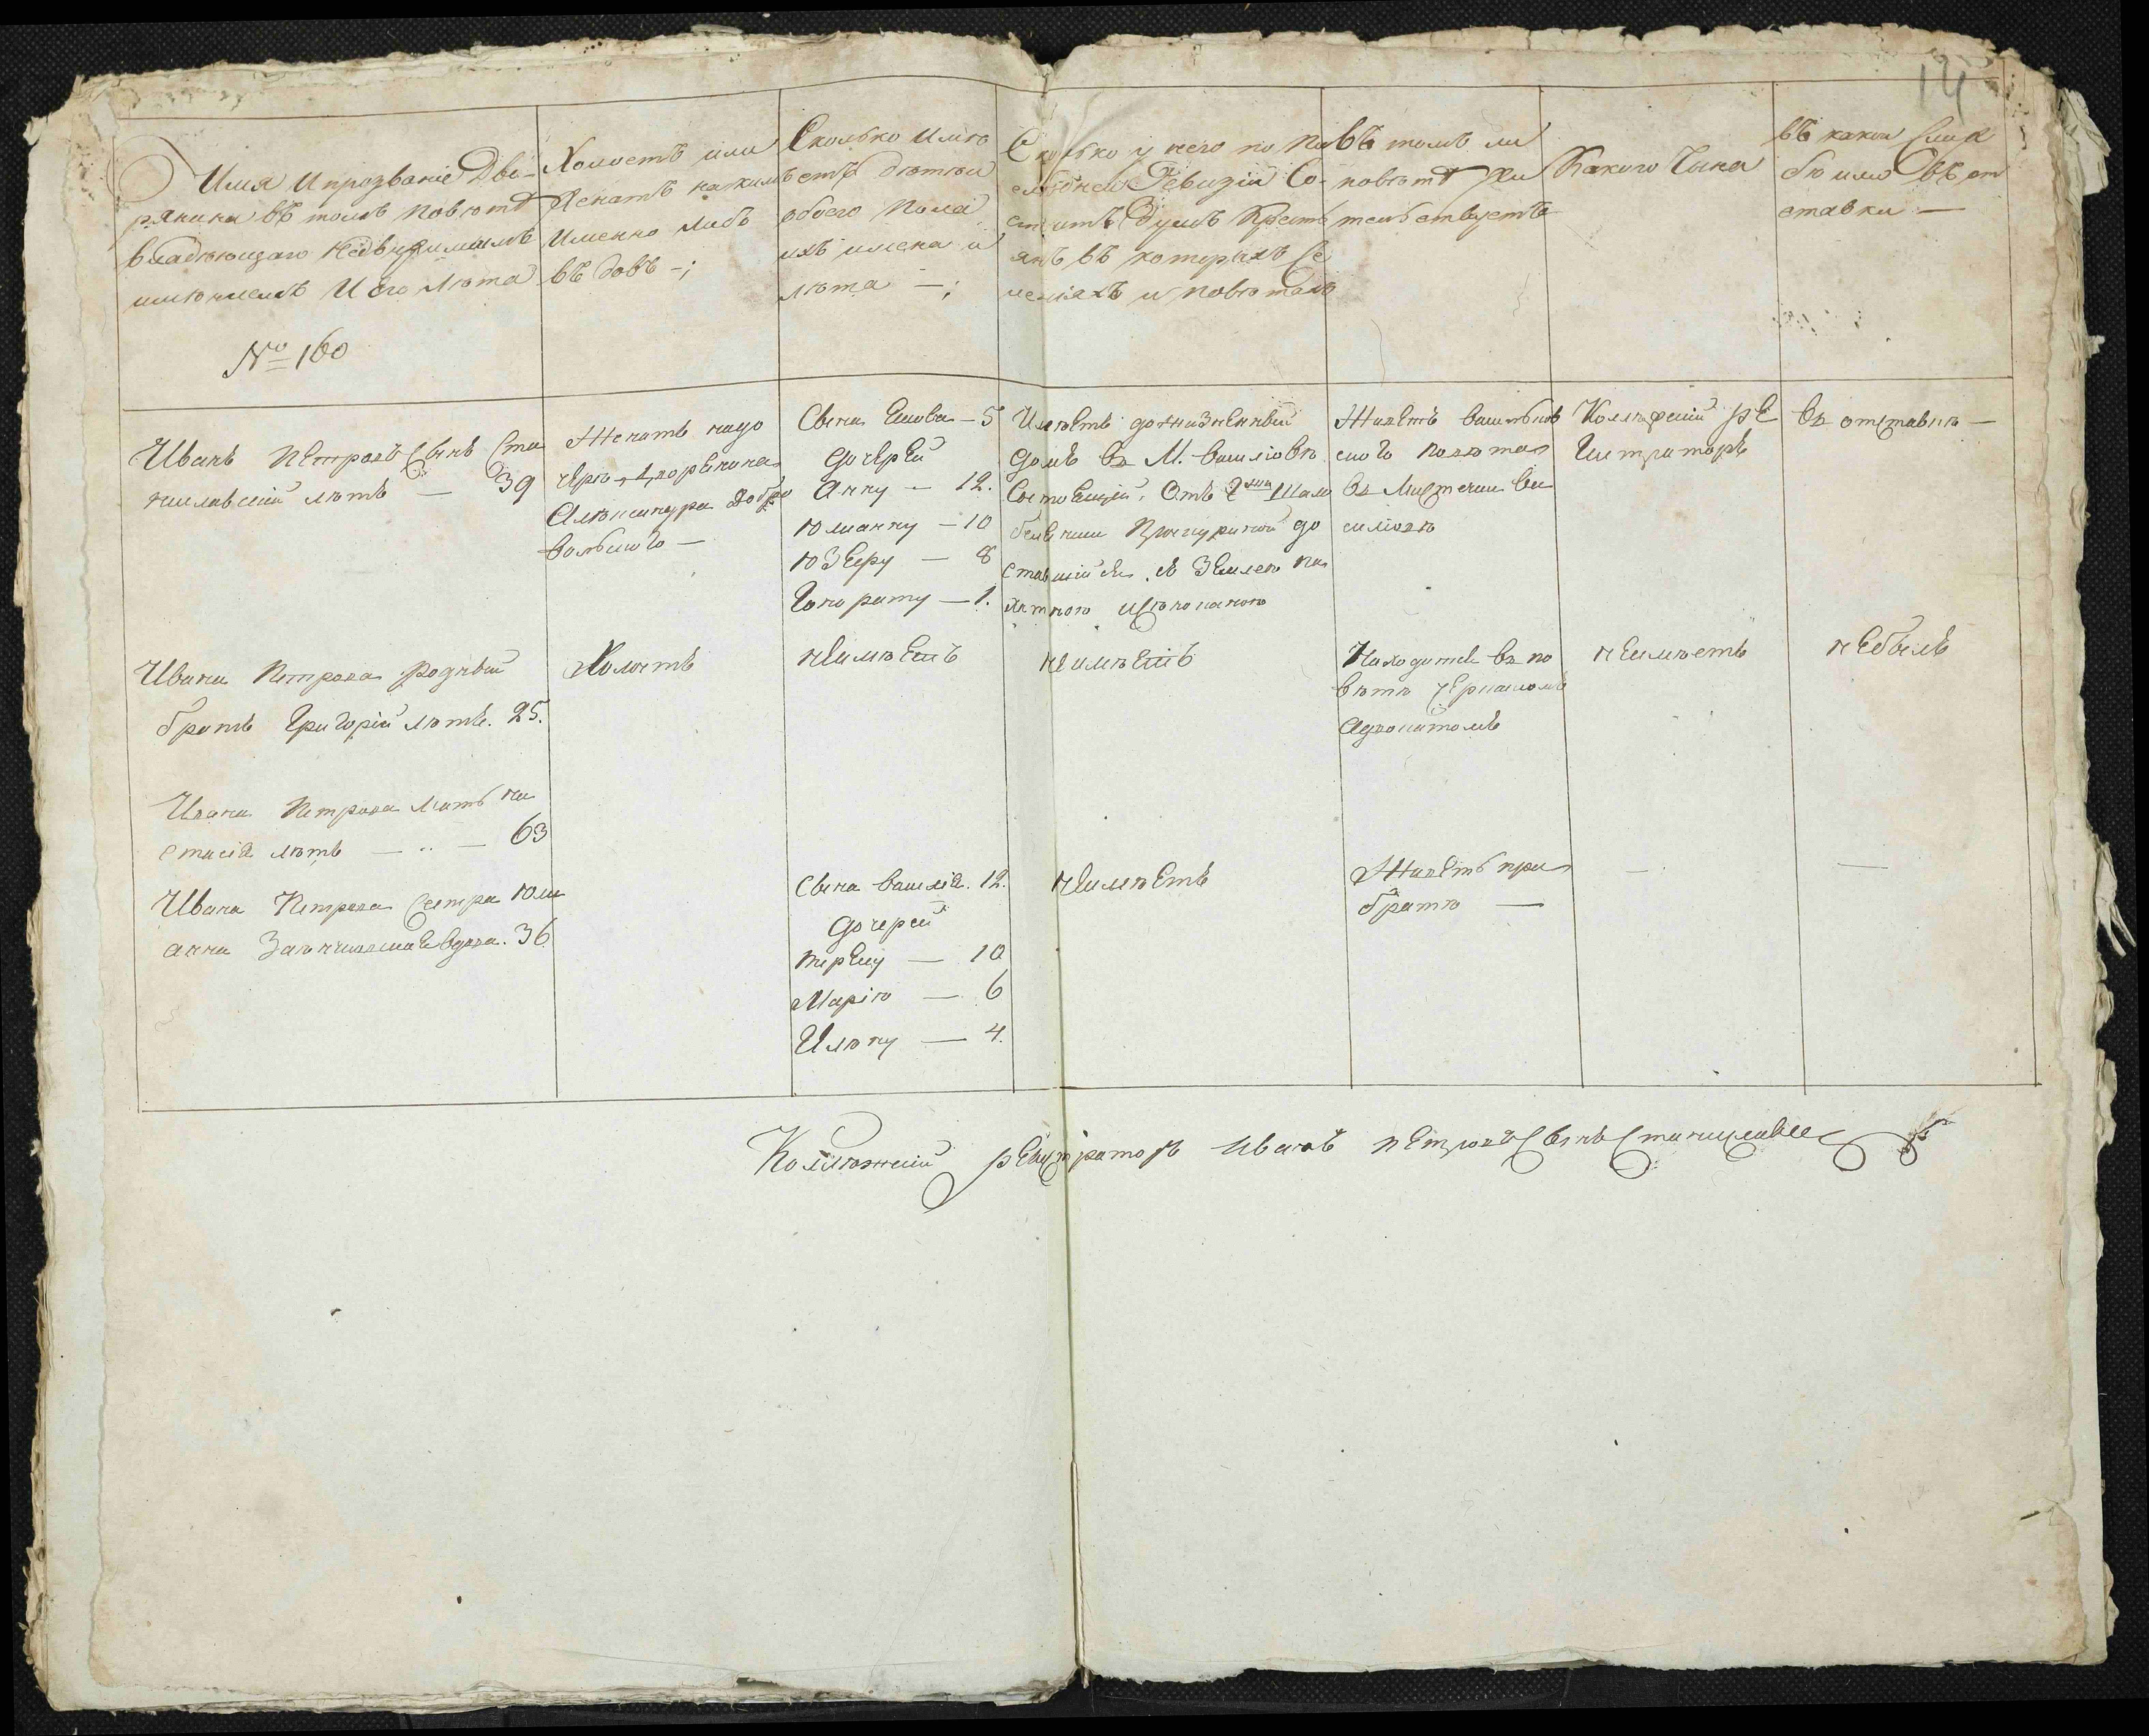 14
Имя и прозваніе Дво-
рянина въ томъ повѣтѣ
владѣющаго недвижимымъ
имѣніемъ и его лѣта
№ 160
Холостъ или
женатъ на комъ
именно либо
въ довъ -;
Сколько имѣ
етъ дѣтей
обоего пола
ихъ имена и
лѣта -;
Сколько у него по по
слѣдней Ревизіи со-
стоитъ Душъ Кресть
янъ въ которыхъ се
леніяхъ и повѣтахъ
Въ томъ ли
повѣтѣ жи
тельствуетъ
Какого Чина
въ какой служ
бѣ или въ от
ставки —
Иванъ Петровъ Сынъ Ста
ниславскій лѣтъ — 39
Женатъ на до
черѣ дворенина
Александра Добро
вольского —
Сына Якова — 5
дочерей
Анну — 12.
Юліанну — 10
Юзефу — 8
Гонорату — 1.
Имѣетъ
домъ въ М. Василіовѣ
состоящій, отъ
до
ставшійся, съ землею па
хатною и сѣнокосною
Живетъ васильков
ского повѣта
въ Мѣстечки Ва
силіовѣ
Коллежскій Ре
гистраторъ
въ отставкѣ —
Ивана Петрова родный
братъ Григорій лѣтъ. 25.
Холостъ
неимѣетъ
неимѣетъ
Находится въ по
вѣтѣ Черкаскомъ
Адвокатомъ
неимѣетъ
небылъ
Ивана Петрова Мать На
стасія лѣтъ — .. — 63
Ивана Петрова Сестра Юли
анна вдова. 36
Сына Василія. 12.
дочерей
Терезу — 10
Марію — 6
Илену — 4.
неимѣетъ
Живетъ при
братѣ —
—
—
Коллежскій регистраторъ Иванъ Петровъ Сынъ Станиславскій